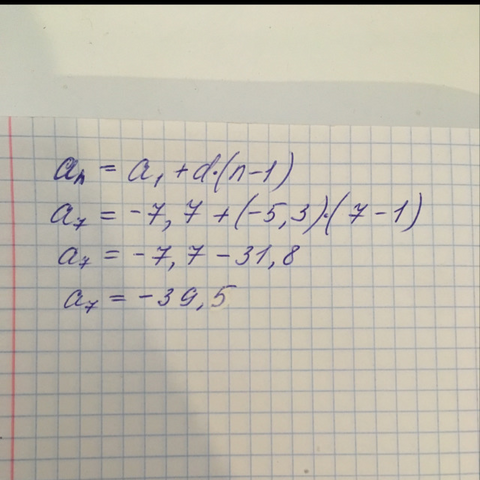 aₙ = a₁ + d·(n-1)
a₇ = -7,7 + (-5,3)·(7-1)
a₇ = -7,7 - 31,8
a₇ = -39,5